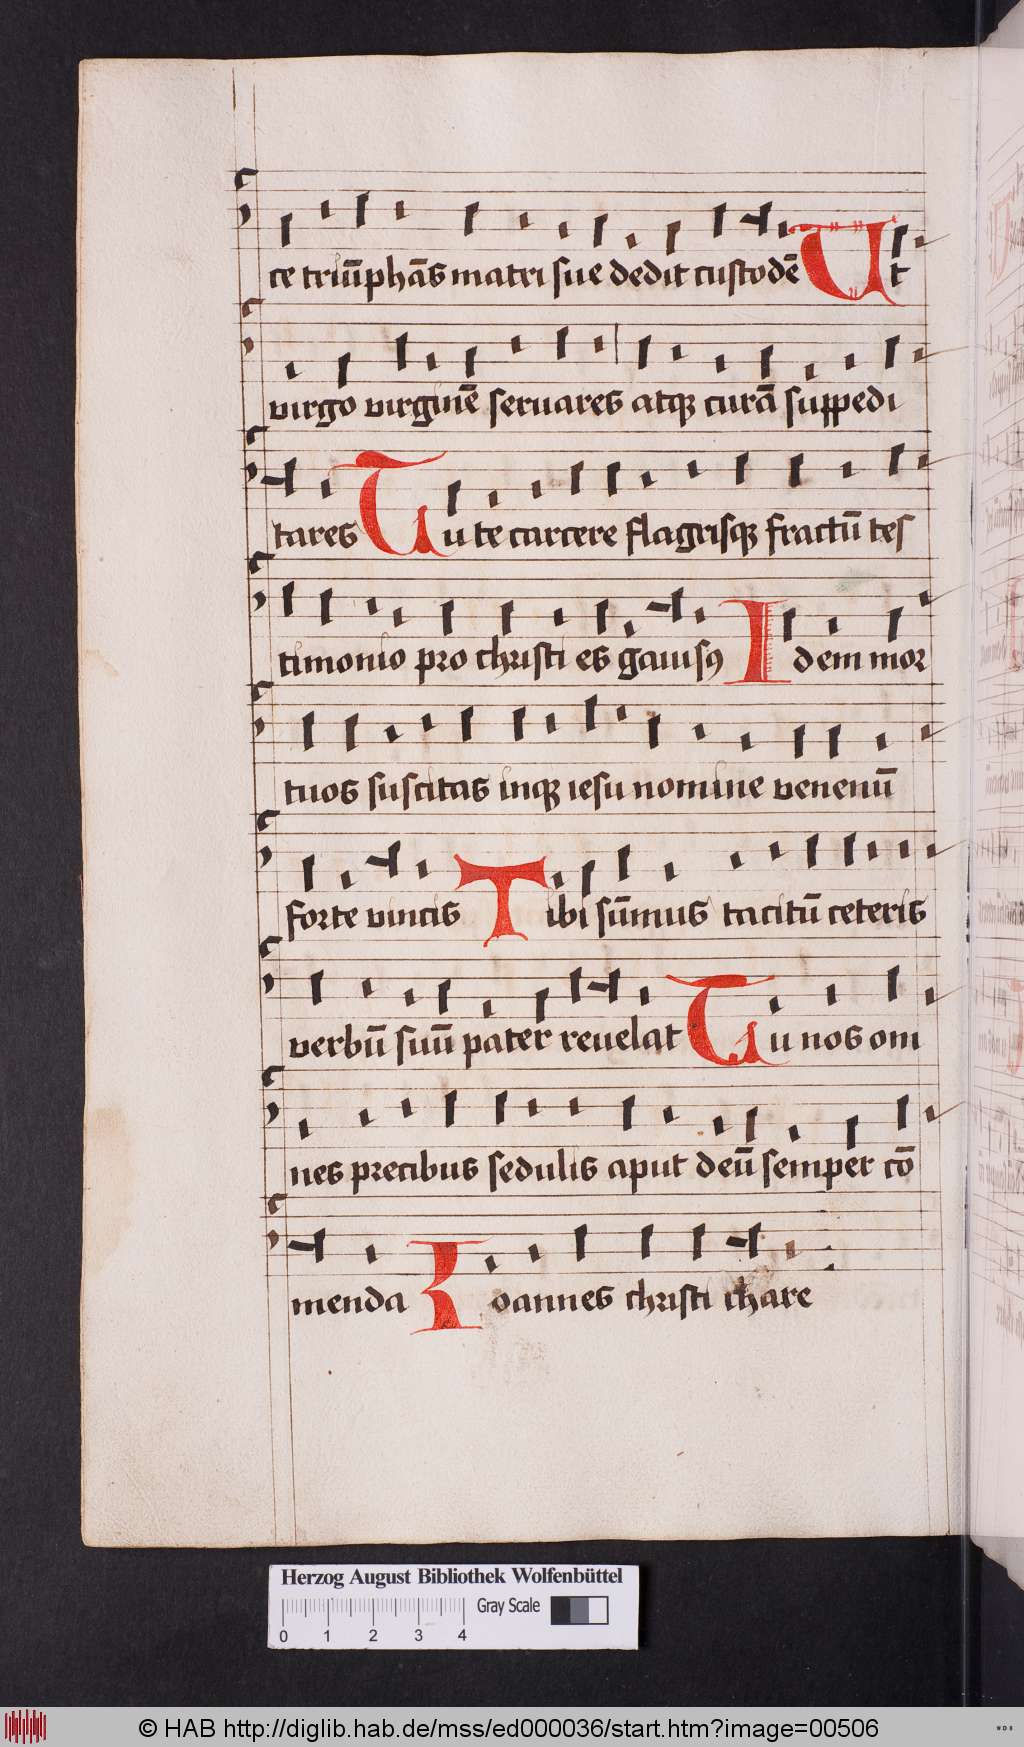 ce triūphās matri sue dedit custodē Ut
virgo virginē seruares atqꝫ curā suppedi
tares Tu te carcere flagrisqꝫ fractū tes
timonio pro christi es gauisꝰ Idem mor
tuos suscitas inqꝫ iesu nomine venenū
forte vincis Tibi sūmus tacitū ceteris
verbū suū pater reuelat Tu nos om
nes precibus sedulis aput deū semper cō
menda Ioannes christi chare
Herzog August Bibliothek Wolfenbüttel
Gray Scale
0 1 2 3 4
© HAB http://diglib.hab.de/mss/ed000036/start.htm?image=00506